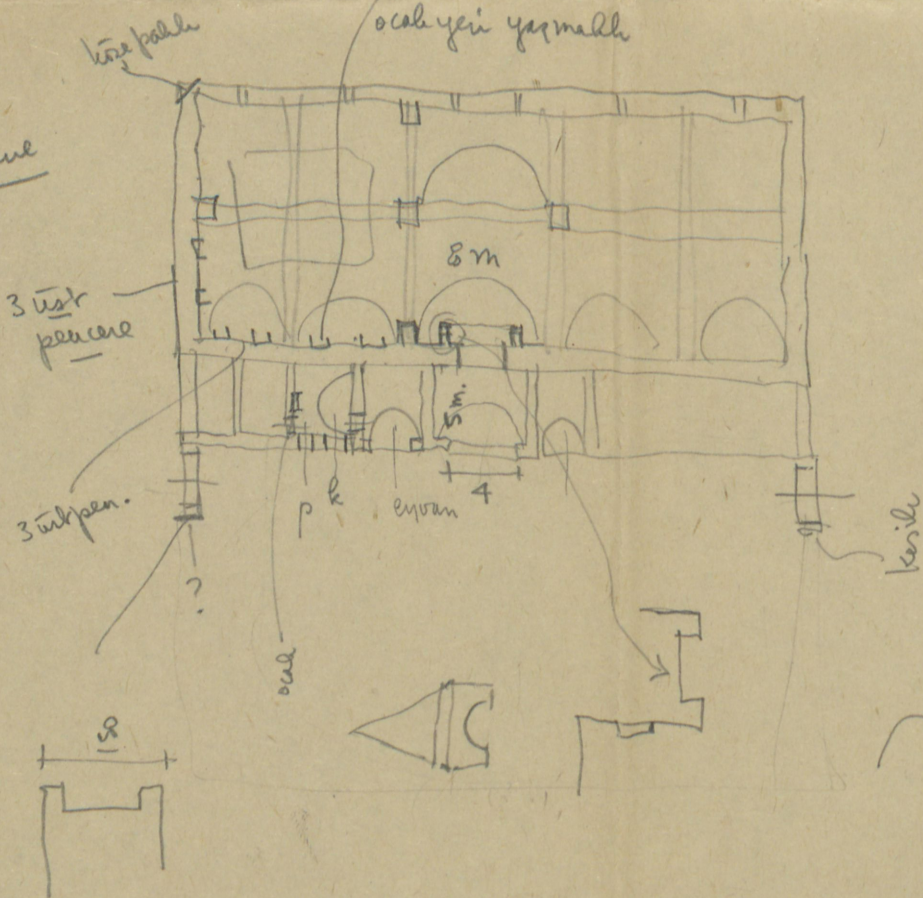 köşe pahlı
ocak yeri yaşmaklı
8 m
3 üst
pencere
5 m.
4
3 üst pen.
p
k
eyvan
?
ocak